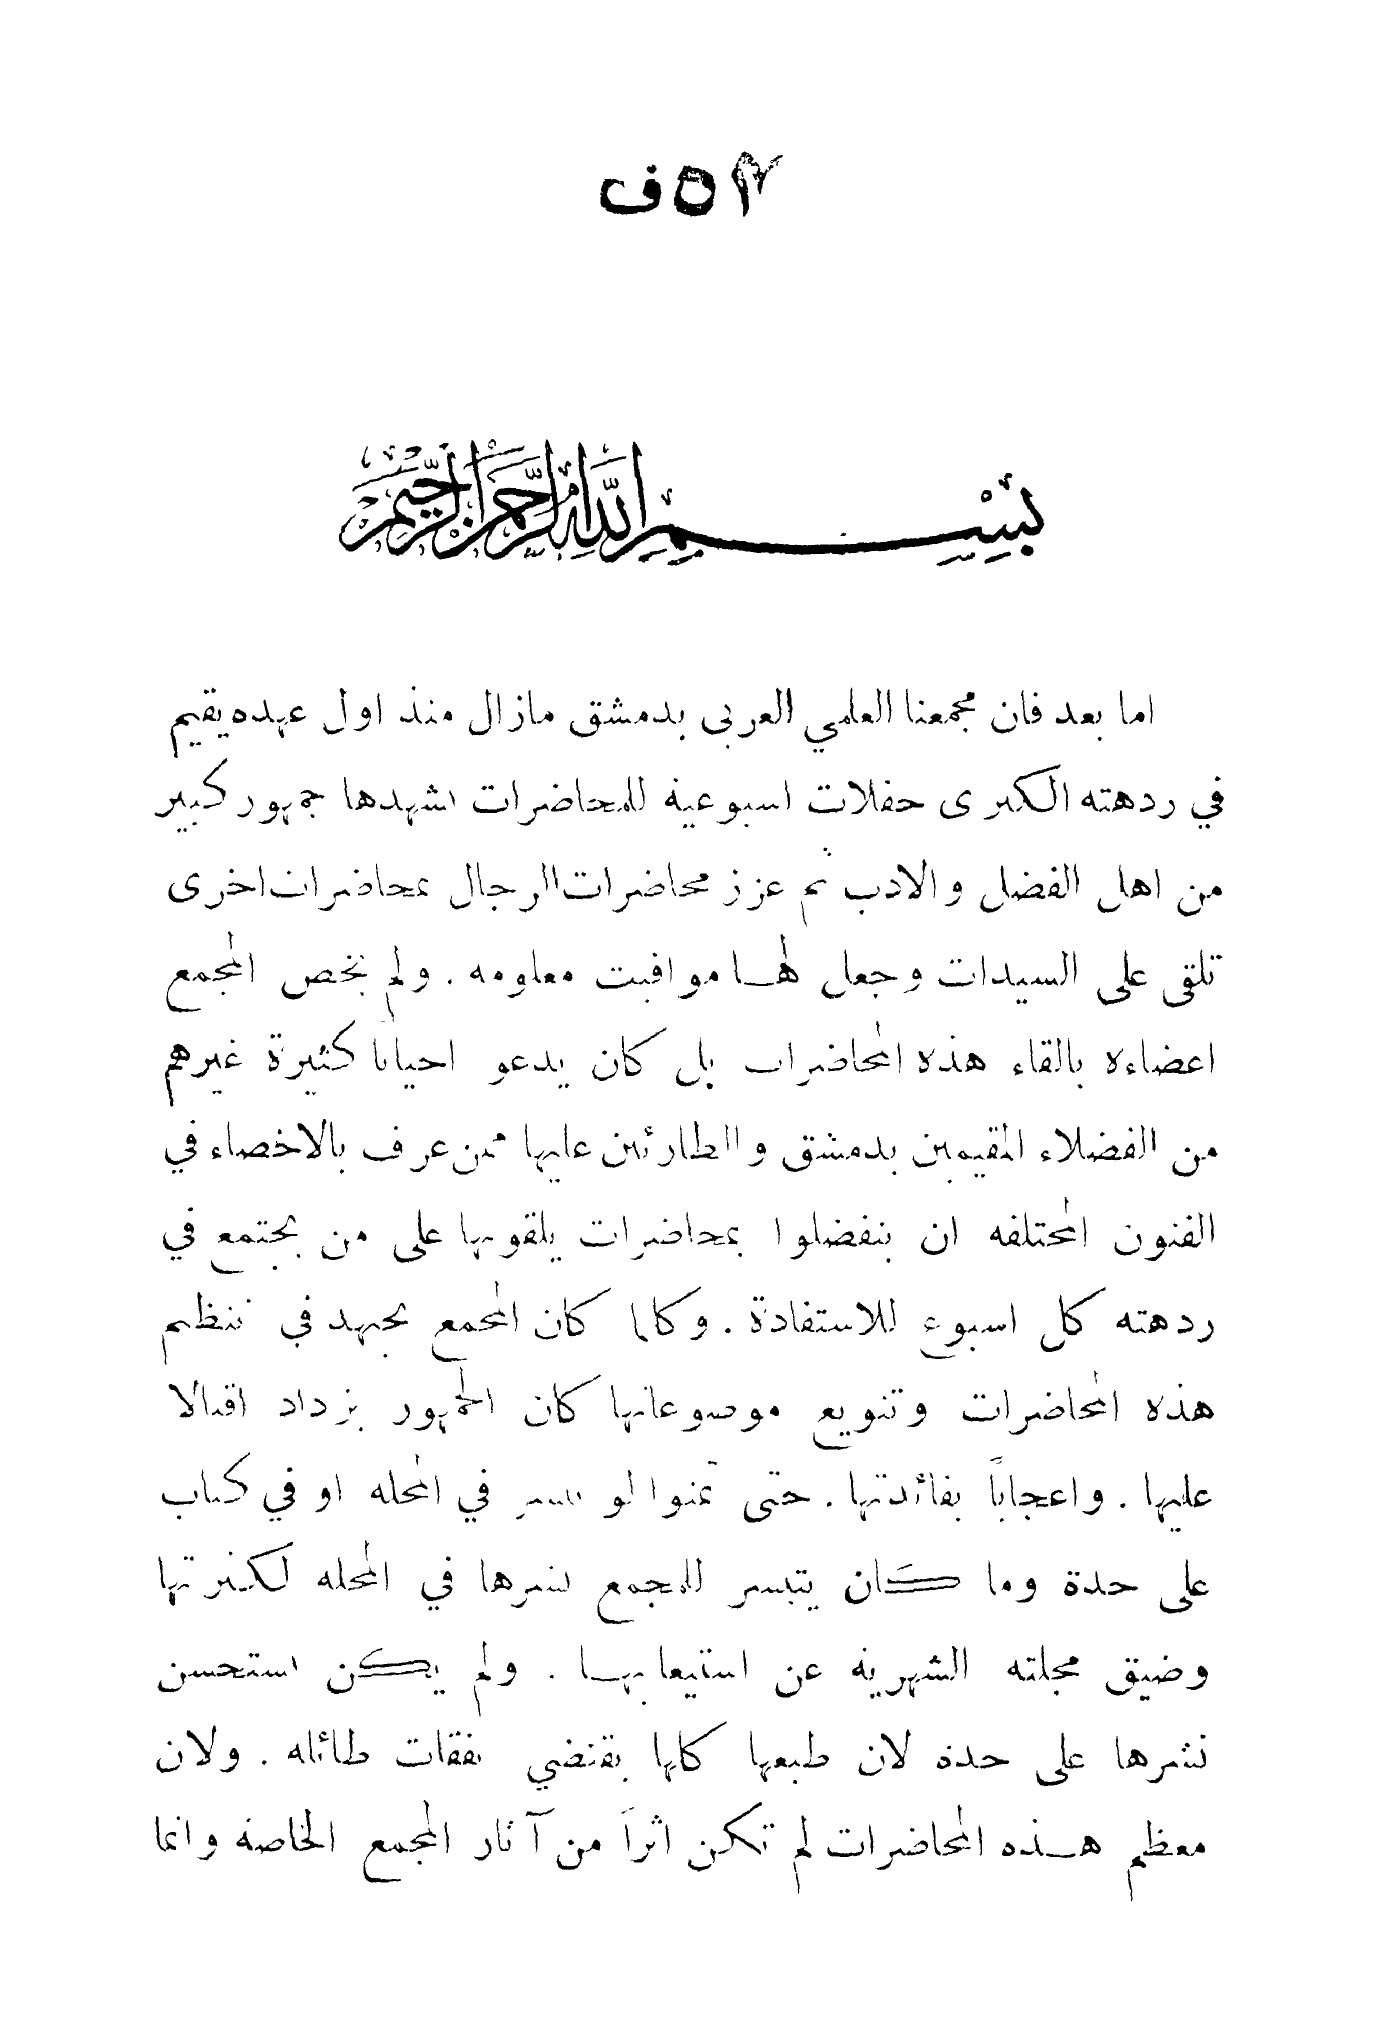 بِسْمِ اللهِ الرَّحْمنِ الرَّحِيمِ
اما بعد فان مجمعنا العلمي العربي بدمشق مازال منذ اول عهده يقيم
في ردهته الكبرى حفلات اسبوعية للمحاضرات شهدها جمهور كبير
من اهل الفضل والادب ثم عزز محاضرات الرجال بمحاضرات اخرى
تلقى على السيدات وجعل لهـا مواقيت معلومة . ولم يخص المجمع
اعضاءه بالقاء هذه المحاضرات بل كان يدعو احياناً كثيرة غيرهم
من الفضلاء المقيمين بدمشق والطارئين عليها ممن عرف بالاخصاء في
الفنون المختلفة ان يتفضلوا بمحاضرات يلقونها على من يجتمع في
ردهته كل اسبوع للاستفادة . وكلما كان المجمع يجتهد في تنظيم
هذه المحاضرات وتنويع موضوعاتها كان الجمهور يزداد اقبالا
عليها . واعجاباً بفائدتها . حتى تمنوا لو تنشر في المجلة او في كتاب
على حدة وما كان يتيسر للمجمع نشرها في المجلة لكثرتها
وضيق مجلته الشهرية عن استيعابهـا . ولم يكن استحسن
نشرها على حدة لان طبعها كلها يقتضي نفقات طائلة . ولان
معظم هـذه المحاضرات لم تكن اثراً من آثار المجمع الخاصة وانما